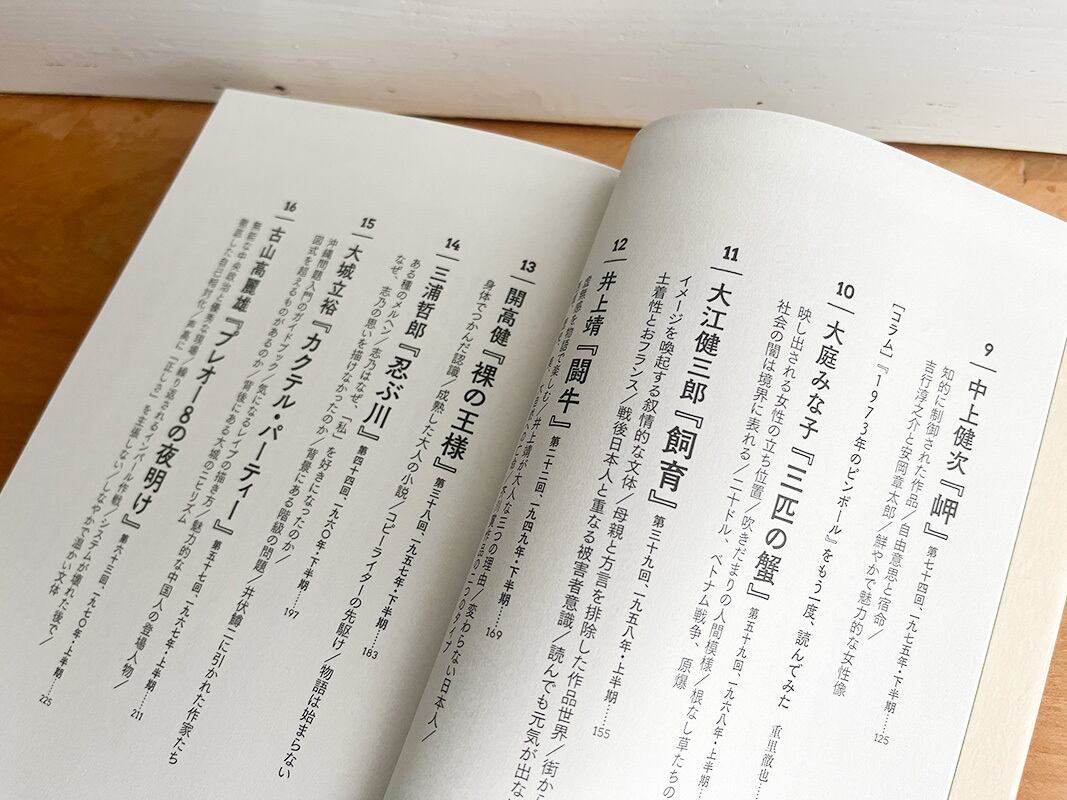 9
中上健次『岬』 第七十四回、一九七五年・下半期……125
知的に制御された作品／自由意思と宿命／
吉行淳之介と安岡章太郎／鮮やかで魅力的な女性像
［コラム］『1973年のピンボール』をもう一度、読んでみた 重里徹也……
10
大庭みな子『三匹の蟹』 第五十九回、一九六八年・上半期……
映し出される女性の立ち位置／吹きだまりの人間模様／根なし草たちの
社会の闇は境界に表れる／二十ドル、ベトナム戦争、原爆
11
大江健三郎『飼育』 第三十九回、一九五八年・上半期……155
イメージを喚起する叙情的な文体／母親と方言を排除した作品世界／街から
土着性とおフランス／戦後日本人と重なる被害者意識／読んでも元気が出な
12
井上靖『闘牛』 第二十二回、一九四九年・下半期……169
虚無感を物語で楽しむ／井上靖が大人な三つの理由／変わらない日本人／
13
開高健『裸の王様』 第三十八回、一九五七年・下半期……183
身体でつかんだ認識／成熟した大人の小説／コピーライターの先駆け／物語は始まらない
14
三浦哲郎『忍ぶ川』 第四十四回、一九六〇年・下半期……197
ある種のメルヘン／志乃はなぜ、「私」を好きになったのか／
なぜ、志乃の思いを描けなかったのか／背景にある階級の問題／井伏鱒二に引かれた作家たち
15
大城立裕『カクテル・パーティー』 第五十七回、一九六七年・上半期……211
沖縄問題入門のガイドブック／気になるレイプの描き方／魅力的な中国人の登場人物／
図式を超えるものがあるのか／背後にある大城のニヒリズム
16
古山高麗雄『プレオー8の夜明け』 第六十三回、一九七〇年・上半期……225
無能な中央政治と優秀な現場／繰り返されるインパール作戦／システムが壊れた後で／
徹底した自己相対化／声高に「正しさ」を主張しない／しなやかで温かい文体